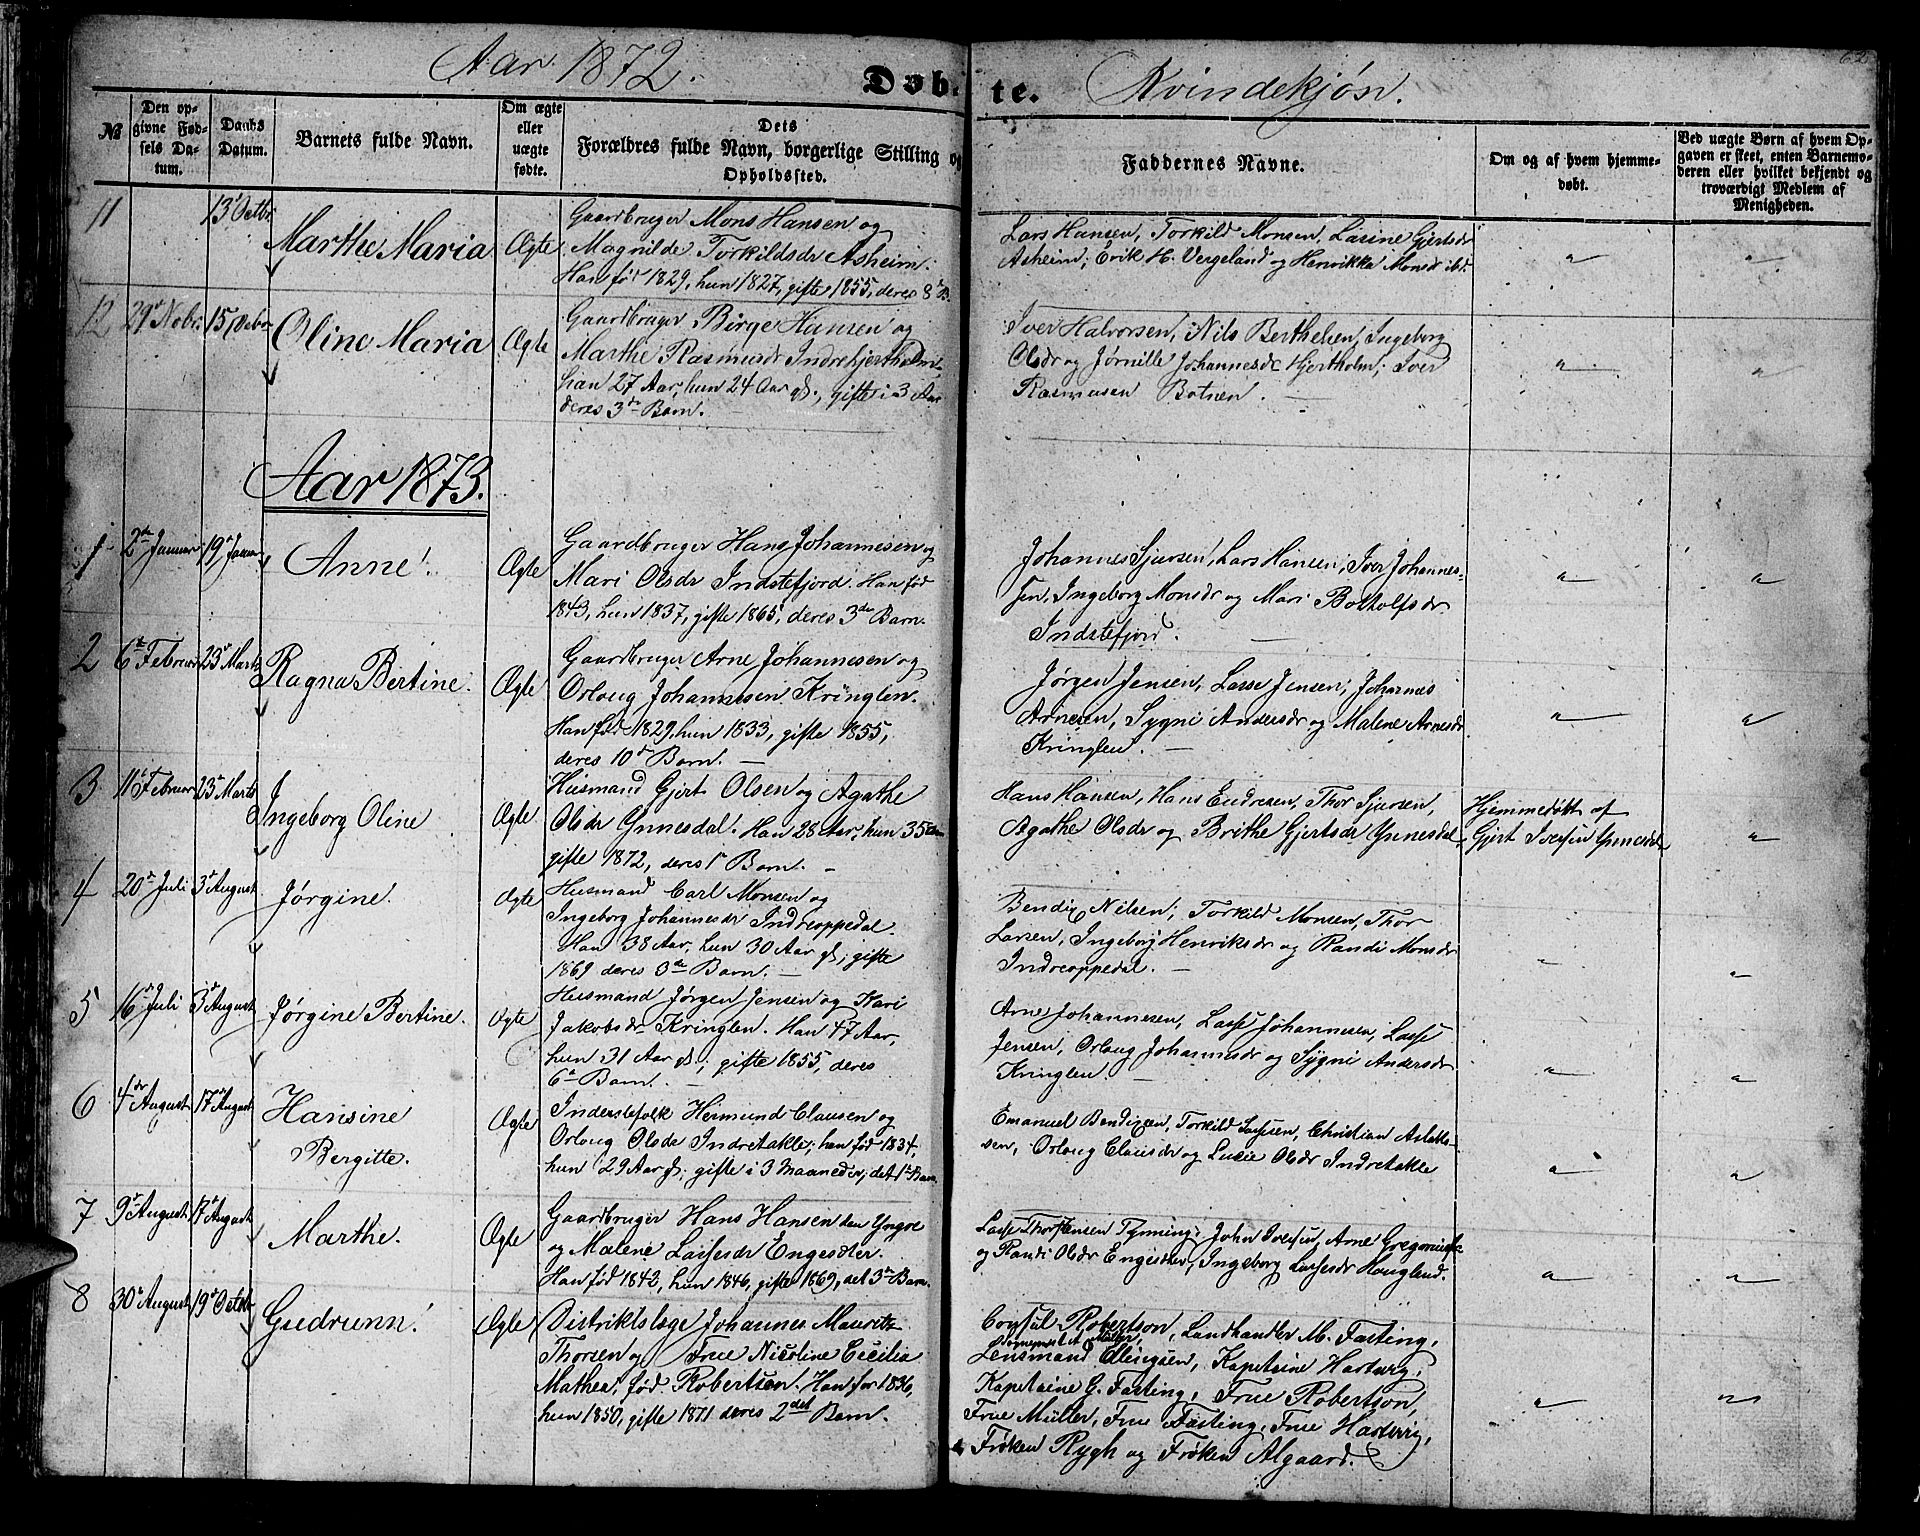 62
Aar 1872.
Døbte.
Kvindekjøn.
№
Den op-
givne Fød-
sels Da-
tum.
Daabs
Datum.
Barnets fulde Navn.
Om ægte
eller
uægte
fødte.
Dets
Forældres fulde Navn, borgerlige Stilling og
Opholdssted.
Faddernes Navne.
Om og af hvem hjemme-
døbt.
Ved uægte Børn af hvem Op-
gaven er skeet, enten Barnemo-
deren eller hvilket bekjendt og
troværdigt Medlem af
Menigheden.
11
13d Octbr
Marthe Maria
Ægte
Gaardbruger Mons Hansen og
Magnilde Torkildsdr Asheim.
Han fød 1829, hun 1827, gifte 1855, deres 8d B.
Lars Hansen, Torkild Monsen, Lasine Gjertsdr
Asheim; Erik H. Vergeland og Henrikka Monsdr ibd.
12
29d Novbr
15 Debr
Oline Maria
Ægte
Gaardbruger Birge Hansen og
Marthe Rasmusdr Indrehjertholm
han 27 Aar, hun 24 Aar gl., gifte i 3 Aar
deres 3de Barn.
Iver Halvorsen, Nils Berthelsen, Ingeborg
Olsdr og Jørnille Johannesdr Hjertholm; Iver
Rasmussen Botnen.
Aar 1873.
1
2de Januar
19d Januar
Anne.
Ægte
Gaardbruger Hans Johannesen og
Mari Olsdr Indstefjord. Han fød
1843, hun 1837, gifte 1865, deres 3de Barn.
Johannes Sjursen, Lars Hansen, Iver Johannes-
sen, Ingeborg Monsdr og Mari Bottolfsdr
Indstefjord.
2
6te Februar
23d Marts
Ragna Bertine.
Ægte
Gaardbruger Arne Johannesen og
Orloug Johannesen Kringlen.
Han fød 1829, hun 1833, gifte 1855,
deres 10d Barn.
Jørgen Jensen, Lasse Jensen, Johannes
Arnesen, Sygni Andersdr og Malene Arnesdr
Kringlen.
3
11te Februar
23d Marts
Ingeborg Oline
Ægte
Husmand Gjert Olsen og Agathe
Olsdr Ynnesdal. Han 28 Aar, hun 35
gifte 1872, deres 1ste Barn.
Hans Hansen, Hans Endresen, Thor Sjursen,
Agathe Olsdr og Brithe Gjertsdr Ynnesdal
Hjemmedøbt af
Gjert Iversen Ynnesdal
4
20d Juli
3d August
Jørgine.
Ægte
Husmand Carl Monsen og
Ingeborg Johannesdr Indreoppedal.
Han 38 Aar, hun 30 Aar gl., gifte
1869 deres 3de Barn.
Bendix Nilsen, Torkild Monsen, Thor
Larsen, Ingeborg Henriksdr og Randi Monsdr
Indreoppedal.
5
16d Juli
3d August
Jørgine Bertine.
Ægte
Husmand Jørgen Jensen og Kari
Jakobsdr Kringlen. Han 47 Aar,
hun 31 Aar gl.; gifte 1855, deres
6te Barn.
Arne Johannesen, Lasse Johannesen, Lasse
Jensen, Orloug Johannesdr og Sygni Andersdr
Kringlen.
6
4de August
17d August
Hansine
Bergitte.
Ægte
Inderstefolk Hermund Clausen og
Orloug Olsdr Indretakle; han fød 1834,
hun 29 Aar gl. gifte i 3 Maaneder, det 1ste Barn.
Emanuel Bendixen, Torkild Lassesen, Christian Aslak-
sen, Orloug Clausdr og Lucie Olsdr Indretakle
7
9d August
17d August
Marthe.
Ægte
Gaardbruger Hans Hansen den Yngre
og Malene Lassesdr Engesæter.
Han fød 1843, hun 1846, gifte 1869, det 3de Barn.
Lasse Thorstensen Tynning, John Iversen, Arne Gregoriusen
og Randi Olsdr Engesæter, Ingeborg Lassesdr Hougland.
8
30d August
19d Octobr
Gudrunn.
Ægte
Distriktslæge Johannes Mauritz
Thorsen og Frue Nicoline Cecilia
Mathea, fød Robertson. Han før 1836,
hun 1850, gifte 1871 deres 2det Barn.
Consul Robertson, Landhandler M. Fasting,
Lensmand Ellingsen, Kapetaine Hartwig,
Kapetaine G. Fasting, Frue Robertson,
Frue Müller, Frue Fasting, Frue Hartwig,
Frøken Rygh og Frøken Algaard.